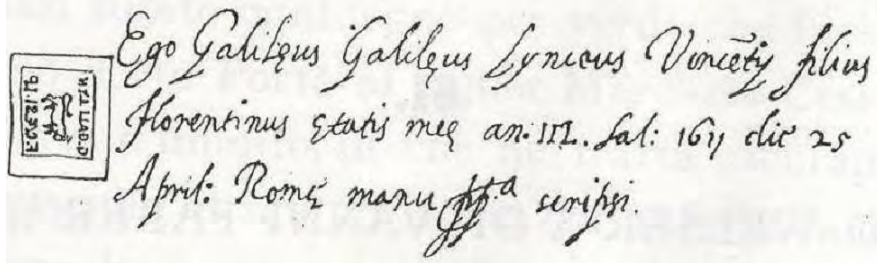 Ego Galilęus Galilęus Lynceus Vincētij filius
Florentinus ętatis meę an: IIL. sal: 1611 die 25
April: Romę manu pp.ª scripsi.